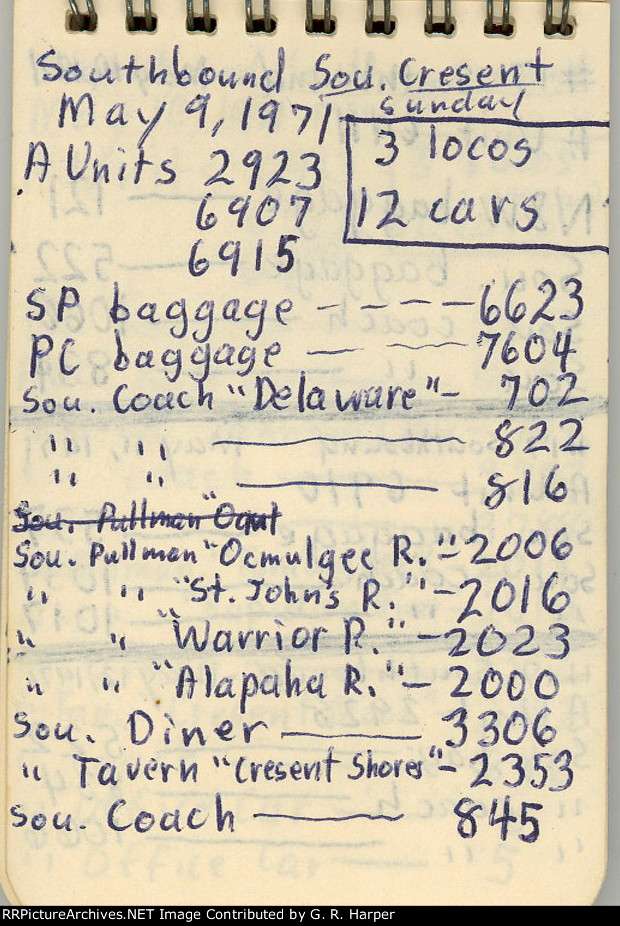 Southbound Sou. Cresent
May 9, 1971 - sunday
A Units 2923
6907
6915
3 locos
12 cars
SP baggage ---- 6623
PC baggage --- 7604
Sou. Coach "Delaware" - 702
" " ——— 822
" " ——— 816
Sou. Pullman "Ocmulgee R." - 2006
" " "St. John's R." - 2016
" " "Warrior R." - 2023
" " "Alapaha R." - 2000
Sou. Diner ——— 3306
" Tavern "Cresent Shores" - 2353
Sou. Coach ——— 845
RRPictureArchives.NET Image Contributed by G. R. Harper